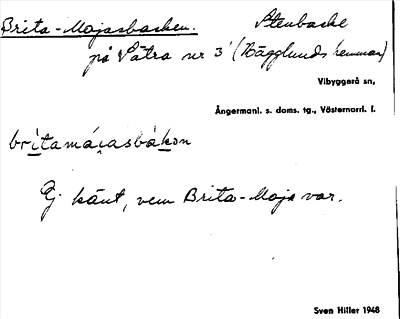 Brita-Majasbacken. Stenbacke
på Sätra nr 3 (Hägglunds hemman)
Vibyggerå sn,
Ångermanl. s. doms. tg., Västernorrl. l.
brìtamáiasbákon
Ej känt, vem Brita-Maja var.
Sven Hiller 1948